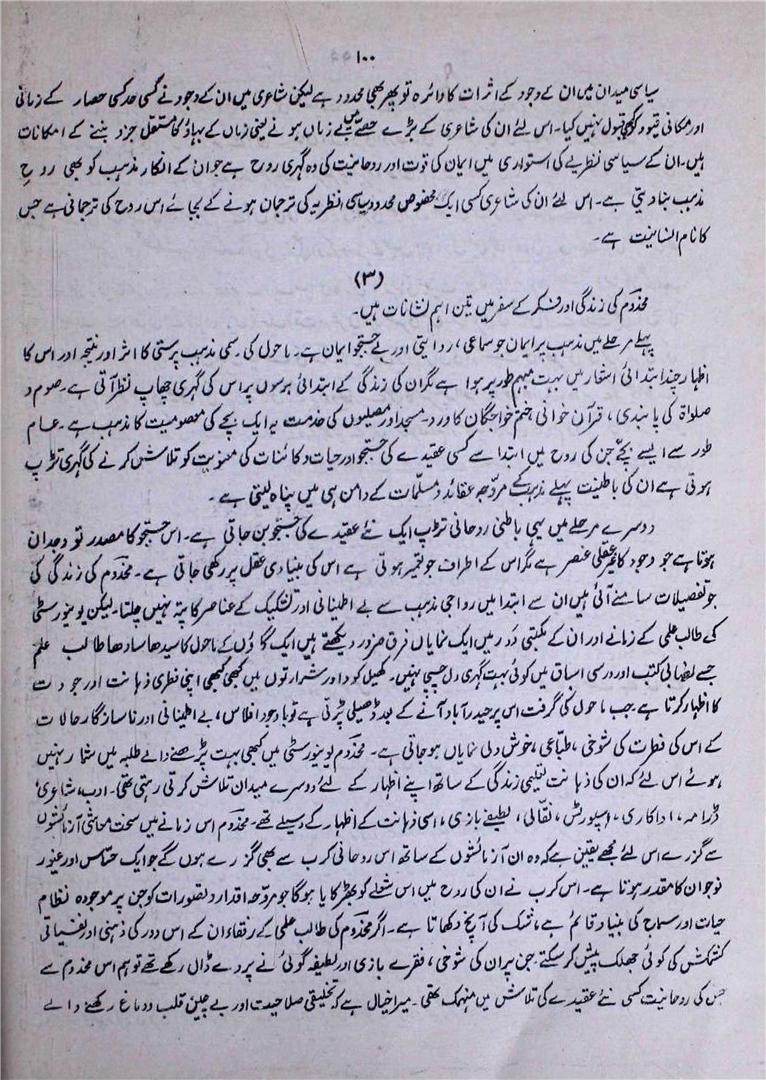 ۱۰۰
سیاسی میدان میں ان کے وجود کے اثرات کا دائرہ تو پھر بھی محدود ہے لیکن شاعری میں ان کے وجود نے کسی حد کسی حصار کے زمانی
اور مکانی قیود کو بھی قبول نہیں کیا۔ اس لئے ان کی شاعری کے بڑے حصے میں بے زماں ہونے یعنی زماں کے بہاؤ کا مستقل جزد بننے کے امکانات
ہیں۔ ان کے سیاسی نظریے کی استواری میں ایمان کی قوت اور روحانیت کی وہ گہری روح ہے جو ان کے انکار مذہب کو بھی روحِ
مذہب بنا دیتی ہے۔ اس لئے ان کی شاعری کسی ایک مخصوص محدود سیاسی نظریہ کی ترجمان ہونے کے بجائے اس روح کی ترجمانی ہے جس
کا نام انسانیت ہے۔
(۳)
مخدوم کی زندگی اور فکر کے سفر میں تین اہم نشانات ہیں۔
پہلے مرحلے میں مذہب پر ایمان جو سماعی، روایتی اور بے جستجو ایمان ہے۔ ماحول کی رسمی مذہب پرستی کا اثر اور نتیجہ اور اس کا
اظہار چند ابتدائی اشعار میں بہت مبہم طور پر ہوا ہے مگر ان کی زندگی کے ابتدائی برسوں پر اس کی گہری چھاپ نظر آتی ہے۔ صوم و
صلواۃ کی پابندی، قرآن خوانی ختم خواجگان کا ورد۔ مسجد اور مصلیوں کی خدمت یہ ایک بچے کی معصومیت کا مذہب ہے۔ عام
طور سے ایسے بچے جن کی روح میں ابتدا سے کسی عقیدے کی جستجو اور حیات و کائنات کی معنویت کو تلاش کرنے کی گہری تڑپ
ہوتی ہے ان کی باطنیت پہلے مذہب کے مروّجہ عقائد و مسلّمات کے دامن ہی میں پناہ لیتی ہے۔
دوسرے مرحلے میں یہی باطنی روحانی تڑپ ایک نئے عقیدے کی جستجو بن جاتی ہے۔ اس جستجو کا مصدر تو وجدان
ہوتا ہے جو وجود کا غیر عقلی عنصر ہے مگر اس کے اطراف جو تعمیر ہوتی ہے اس کی بنیادی عقل پر رکھی جاتی ہے۔ مخدوم کی زندگی کی
جو تفصیلات سامنے آئی ہیں ان سے ابتدا میں رواجی مذہب سے بے اطمینانی اور تشکیک کے عناصر کا پتہ نہیں چلتا۔ لیکن یونیورسٹی
کی طالب علمی کے زمانے اور ان کے مکتبی دَور میں ایک نمایاں فرق ضرور دیکھتے ہیں ایک گاؤں کے ماحول کا سیدھا سادھا طالب علم
جسے نصابی کتب اور درسی اسباق میں کوئی بہت گہری دل چسپی نہیں۔ کھیل کود اور شرارتوں میں کبھی کبھی اپنی فطری ذہانت اور جودت
کا اظہار کرتا ہے جب ماحول کی گرفت اس پر حیدرآباد آنے کے بعد ڈھیلی پڑتی ہے تو باوجود افلاس، بے اطمینانی اور ناسازگار حالات
کے اس کی فطرت کی شوخی، طبّاعی، خوش دلی نمایاں ہو جاتی ہے۔ مخدوم یونیورسٹی میں کبھی بہت پڑھنے والے طلبہ میں شمار نہیں
ہوئے اس لئے کہ ان کی ذہانت تعلیمی زندگی کے ساتھ اپنے اظہار کے لئے دوسرے میدان تلاش کرتی رہتی تھی۔ ادب، شاعری،
ڈرامہ، اداکاری، اسپورٹس، نقّالی، لطیفے بازی، اسی ذہانت کے اظہار کے وسیلے تھے۔ مخدوم اس زمانے میں سخت معاشی آزمائشوں
سے گزرے اس لئے مجھے یقین ہے کہ وہ ان آزمائشوں کے ساتھ اس روحانی کرب سے بھی گزرے ہوں گے جو ایک حسّاس اور غیور
نوجوان کا مقدر ہوتا ہے۔ اس کرب نے ان کی روح میں اس شعلے کو بھڑکایا ہوگا جو مروّجہ اقدار و تصورات کو جن پر موجودہ نظام
حیات اور سماج کی بنیاد قائم ہے، شک کی آنچ دکھاتا ہے۔ اگر مخدوم کی طالب علمی کے رفقاء ان کے اس دور کی ذہنی اور نفسیاتی
کشمکش کی کوئی جھلک پیش کر سکتے جن پر ان کی شوخی، فقرے بازی اور لطیفہ گوئی نے پردے ڈال رکھے تھے تو ہم اس مخدوم سے
جس کی روحانیت کسی نئے عقیدے کی تلاش میں منہمک تھی۔ میرا خیال ہے کہ تخلیقی صلاحیت اور بے چین قلب و دماغ رکھنے والے